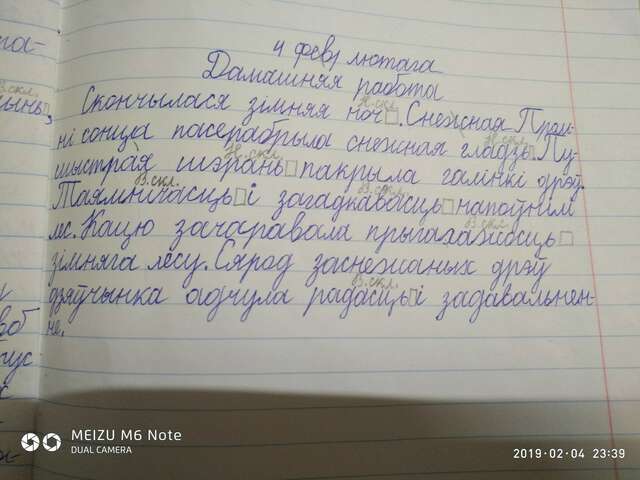 4 февр лютага
Дамашняя работа
Скончылася зімняя ноч. Снежная Прам-
Н.скл.
ні сонца пасерабрыла снежная гладзь. Пу-
шыстрая шэрань пакрыла галінкі дрэў.
Таямнічасць і загадкавасць напоўнілі
В.скл.
лес. Кацю зачаравала прыгажосць
зімняга лесу. Сярод заснежаных дрэў
дзяўчынка адчула радасць і задавальнен-
не.
MEIZU M6 Note
DUAL CAMERA
2019-02-04 23:39